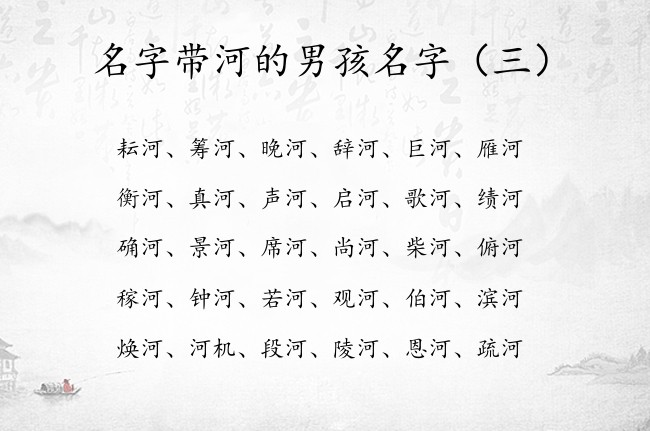 名字带河的男孩名字（三）
耘河、筹河、晚河、辞河、巨河、雁河
衡河、真河、声河、启河、歌河、绩河
确河、景河、席河、尚河、柴河、俯河
稼河、钟河、若河、观河、伯河、滨河
焕河、河机、段河、陵河、恩河、疏河